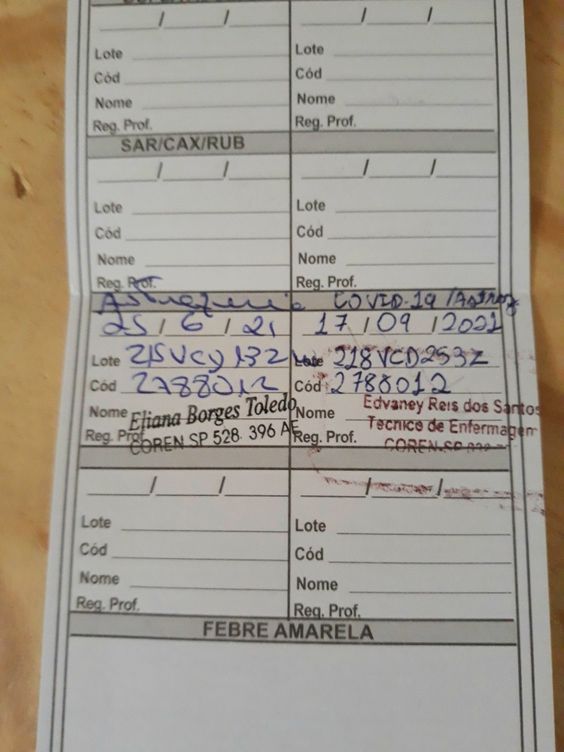 / / / /
Lote Lote
Cód Cód
Nome Nome
Reg. Prof. Reg. Prof.
SAR/CAX/RUB
/ / / /
Lote Lote
Cód Cód
Nome Nome
Reg. Prof. Reg. Prof.
COVID-19
25 / 6 / 21 17 / 09 / 2021
Lote Lote 218VCD253Z
Cód 2788012 Cód 2788012
Nome Eliana Borges Toledo Nome Edvaney Reis dos Santos
Reg. Prof. COREN SP 528. 396 AE Reg. Prof. Tecnico de Enfermagem
COREN-SP
/ / / /
Lote Lote
Cód Cód
Nome Nome
Reg. Prof. Reg. Prof.
FEBRE AMARELA